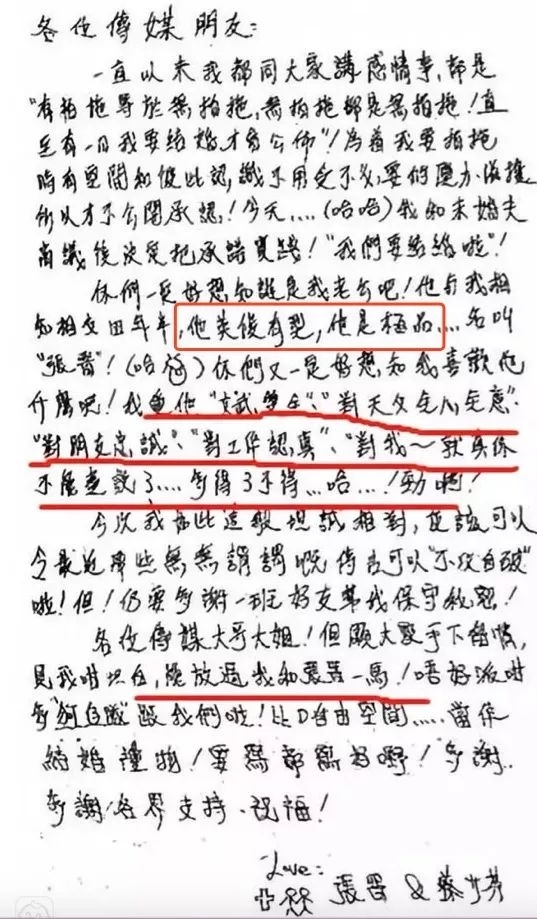 各位傳媒朋友:
一直以來我都同大家講感情事,都是
"有拍拖等於無拍拖,無拍拖都是無拍拖!直
至有一日我要結婚,才會公佈"!為着我要拍拖
時有空間和彼此認識不用受不必要的壓力
所以才不公開承認!今天....(哈哈)我和未婚夫
商議後決定把承諾實踐!"我們要結婚啦"!
你們一定好想知誰是我老公吧!他与我相
知相交四年半,他英俊有型,他是極品....名叫
"張晋"!(哈哈)你們又一定好想知我喜歡他
什麼呢!我 他"文武雙全"、"對父母心意"、
"對朋友忠誠"、"對工作認真"、"對我~就真係
不能盡說了....多得3不得...哈....!勁啊!
今次我 此這般坦誠相對,應該可以
令最近那些無無謂謂嘅傳言可以"不攻自破"
啦!但!仍要多謝一班好友幫我保守秘密!
各位傳媒大哥大姐!但願大家手下留情,
見我咁坦白,能放過我和張晋一馬!唔好派咁
多"狗仔隊"跟我們啦!比D自由空間.....當係
結婚禮物!要寫都寫好嘢!多謝..
多謝各界支持、祝福!
Love:
張晋 & 蔡少芬